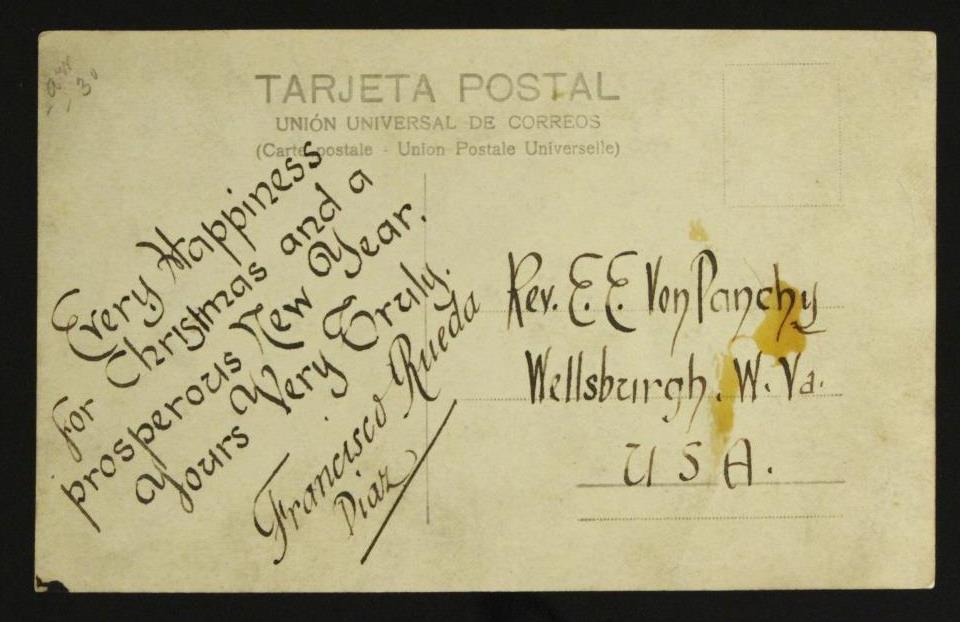 TARJETA POSTAL
UNIÓN UNIVERSAL DE CORREOS
(Carte postale - Union Postale Universelle)
Every Happiness
for Christmas and a
prosperous New Year.
Yours Very Truly.
Francisco Rueda
Diaz
Rev. E. E. Von Panchy
Wellsburgh. W. Va.
U S A.